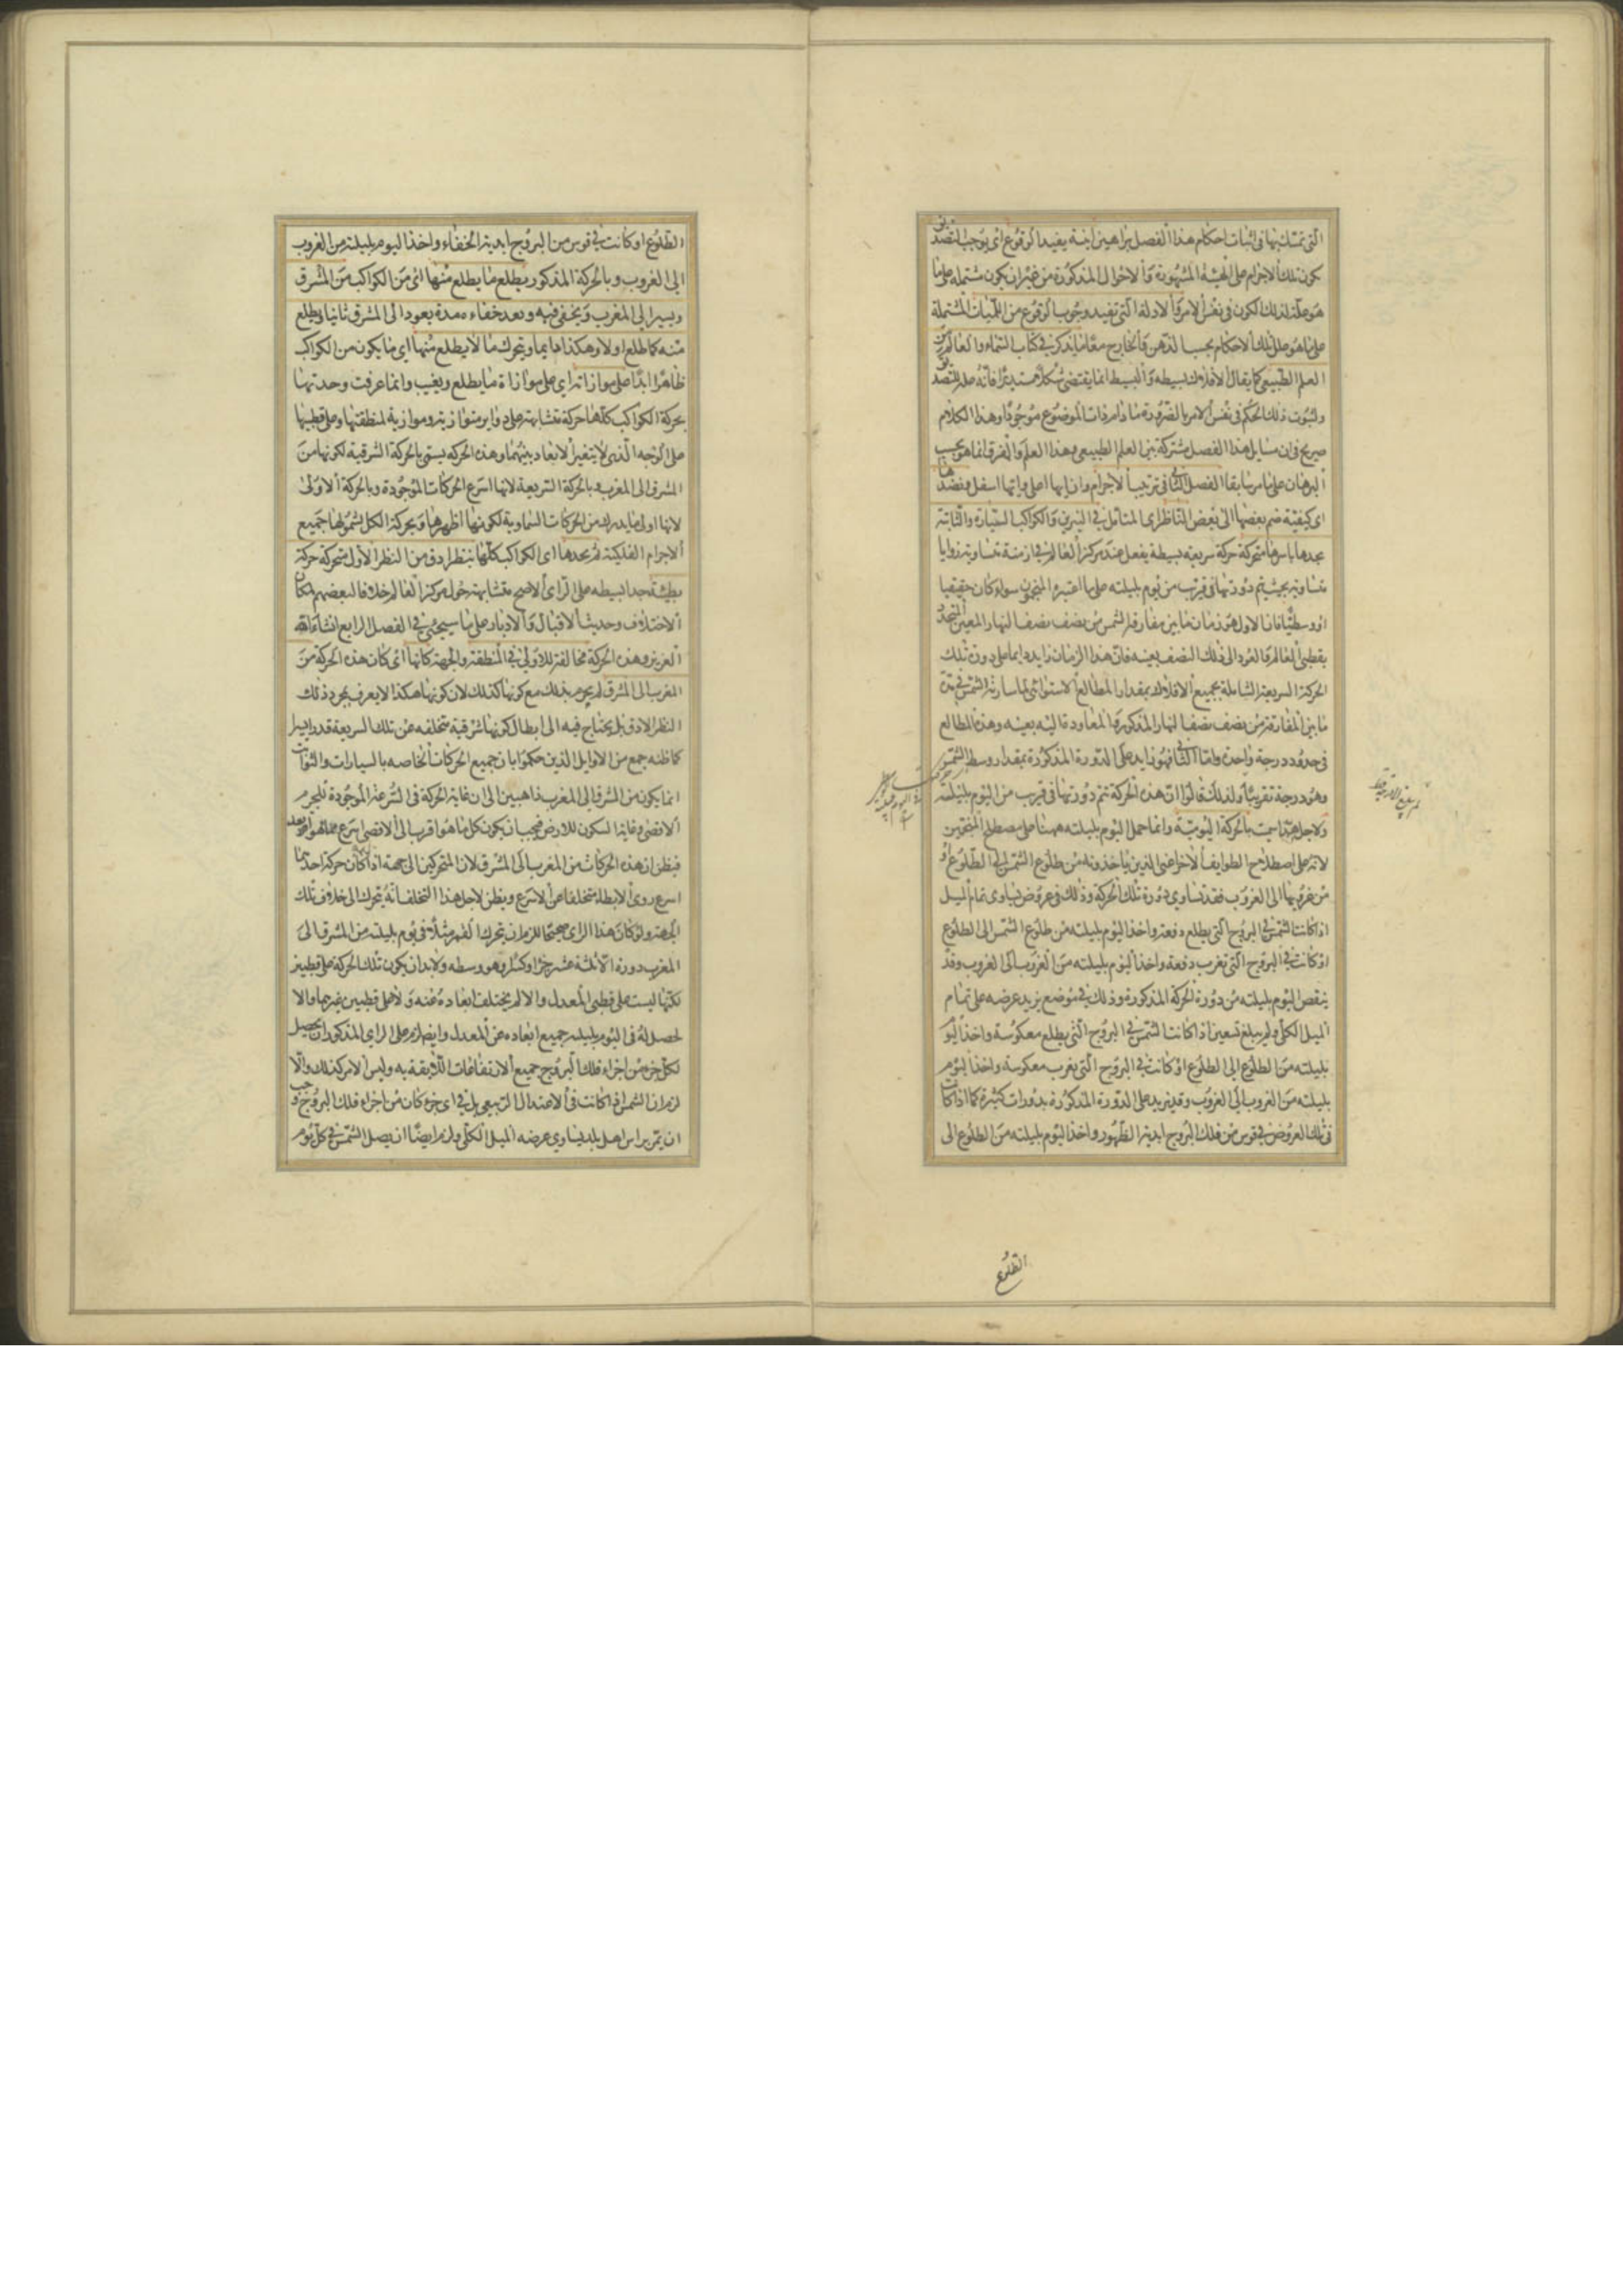 التى تمسك بها فى اثبات احكام هذا الفصل براهين انية يفيد الوقوع اى يوجب التصديق
كون تلك الاجرام على الهيئة المشهورة والاحوال المذكورة من غير ان يكون مشتملة على ما
هو علة لذلك الكون فى نفس الامر والادلة التى تفيد وجوب الوقوع من اللميات المشتملة
على ما هو علل تلك الاحكام بحسب الذهن والخارج معا مما يذكر فى كتاب السماء والعالم من
العلم الطبيعى كما يقال الافلاك بسيطه والبسيط انما يقتضى شكلا مستديرا فانه علة للتصديق
ولثبوت ذلك الحكم فى نفس الامر بالضرورة مادام ذات الموضوع موجودا وهذا الكلام
صريح فى ان مسايل هذا الفصل مشتركة بين العلم الطبيعى وهذا العلم والفرق انما هو بحسب
البرهان على ما مر سابقا الفصل الثانى فى ترتيب الاجرام وان ايها اعلى وايها اسفل ونضدها
اى كيفية ضم بعضها الى بعض الناظر اى المتامل فى النيرين والكواكب السيارة والثابتة
يجدها باسرها متحركة حركة سريعه بسيطة يفعل عند مركز العالم فى ازمنة متساوية زوايا
متساوية بحيث يتم دورتها فى قريب من يوم بليلته على ما اعتبره المنجمون سواء كان حقيقيا
او وسطيا فان الاول هو زمان ما بين مفارقة الشمس من نصف نصف النهار المعين المتحدد
بقطبى العالم والعود الى ذلك النصف بعينه فان هذا الزمان زايد دايما على دورة تلك
الحركة السريعة الشاملة بجميع الافلاك بمقدار المطالع الاستوائى لما سارته الشمس فى مدة
ما بين المفارقة من نصف نصف النهار المذكور والمعاودة اليه بعينه وهذه المطالع
فى حدود درجة واحدة واما الثانى فهو زايد على الدورة المذكورة بمقدار وسط الشمس
وهو درجة تقريبا ولذلك قالوا ان هذه الحركة تتم دورتها فى قرب من اليوم بليلته
ولاجل هذا سميت بالحركة اليومية وانما حمل اليوم بليلته ههنا على مصطلح المنجمين
لانه على اصطلاح الطوايف الاخر اعنى الذين ياخذونه من طلوع الشمس الى الطلوع او
من غروبها الى الغروب فقد تساوى دورة تلك الحركة وذلك فى عروض تساوى تمام الميل
اذا كانت الشمس فى البروج التى يطلع دفعة واخذ اليوم بليلته من طلوع الشمس الى الطلوع
او كانت فى البروج التى تغرب دفعة واخذ اليوم بليلته من الغروب الى الغروب وقد
ينقص اليوم بليلته من دورة الحركة المذكورة وذلك فى موضع يزيد عرضه على تمام
الميل الكلى ولم يبلغ تسعين اذا كانت الشمس فى البروج التى يطلع معكوسة واخذ اليوم
بليلته من الطلوع الى الطلوع او كانت فى البروج التى يغرب معكوسة واخذ اليوم
بليلته من الغروب الى الغروب وقد يزيد على الدورة المذكورة بدورات كثيرة كما اذا كانت
فى تلك العروض فى قوس من فلك البروج ابدية الظهور واخذ اليوم بليلته من الطلوع الى
الطلوع
الطلوع او كانت فى قوس من البروج ابدية الخفاء واخذ اليوم بليلته من الغروب
الى الغروب وبالحركة المذكورة يطلع ما يطلع منها اى من الكواكب من المشرق
ويسير الى المغرب ويخفى فيه وبعد خفاءه مدة يعود الى المشرق ثانيا ويطلع
منه كما طلع اولا وهكذا دايما ويتحرك ما لا يطلع منها اى ما يكون من الكواكب
ظاهرا ابدا على موازاته اى على موازاة ما يطلع ويغيب وانما عرفت وحدتها
بحركة الكواكب كلها حركة متشابهة على دواير متوازية وموازية لمنطقتها وعلى قطبيها
على الوجه الذى لا يتغير الابعاد بينهما وهذه الحركه يسمى بالحركة الشرقية لكونها من
المشرق الى المغرب وبالحركة السريعة لانها اسرع الحركات الموجودة وبالحركة الاولى
لانها اول ما يدرك من الحركات السماوية لكونها اظهرها وبحركة الكل لشمولها جميع
الاجرام الفلكية ثم يجدها اى الكواكب كلها بنظر ادق من النظر الاول متحركة حركة
بطيئة جدا بسيطه على الراى الاصح متشابهة حول مركز العالم خلافا لبعضهم لمكان
الاختلاف وحديث الاقبال والادبار على ما سيجئ فى الفصل الرابع انشاءالله
العزيز وهذه الحركة مخالفة للاولى فى المنطقة والجهة كانها اى كان هذه الحركة من
المغرب الى المشرق لم يجزم بذلك مع كونها كذلك لان كونها هكذا لا يعرف بمجرد ذلك
النظر الادق بل يحتاج فيه الى ابطال كونها شرقية متخلفه عن تلك السريعة قدرا يسيرا
كما ظنه جمع من الاوايل الذين حكموا بان جميع الحركات الخاصه بالسيارات والثوابت
انما يكون من الشرق الى المغرب ذاهبين الى ان غاية الحركة فى السرعة الموجودة للجرم
الاقصى وغاية السكون للارض فيجب ان يكون كل ما هو اقرب الى الاقصى اسرع مما هو ابعد
فيظن ان هذه الحركات من المغرب الى المشرق لان المتحركين الى جهة اذا كان حركة احدهما
اسرع روى الابطا متخلفا عن الاسرع ويظن لاجل هذا التخلف انه يتحرك الى خلاف تلك
الجهة ولو كان هذا الراى صحيحا للزم ان يتحرك القمر مثلا فى يوم بليلته من المشرق الى
المغرب دورة الا ثلثة عشر جزا وكسرا وهو وسطه ولابد ان يكون تلك الحركة على قطبين
لكنها ليست على قطبى المعدل والا لم يختلف ابعاده عنه ولا على قطبين غيرهما والا
لحصل له فى اليوم بليلته جميع ابعاده عن المعدل وايضا لزم على الراى المذكور ان يحصل
لكل جزء من اجزاء فلك البروج جميع الارتفاعات اللايقة به وليس الامر كذلك والا
لزم ان الشمس اذا كانت فى الاعتدال الربيعى بل فى اى جزء كان من اجزاء فلك البروج وجب
ان يمر براس اهل بلد يساوى عرضه الميل الكلى ولزم ايضا ان يصل الشمس فى كل يوم